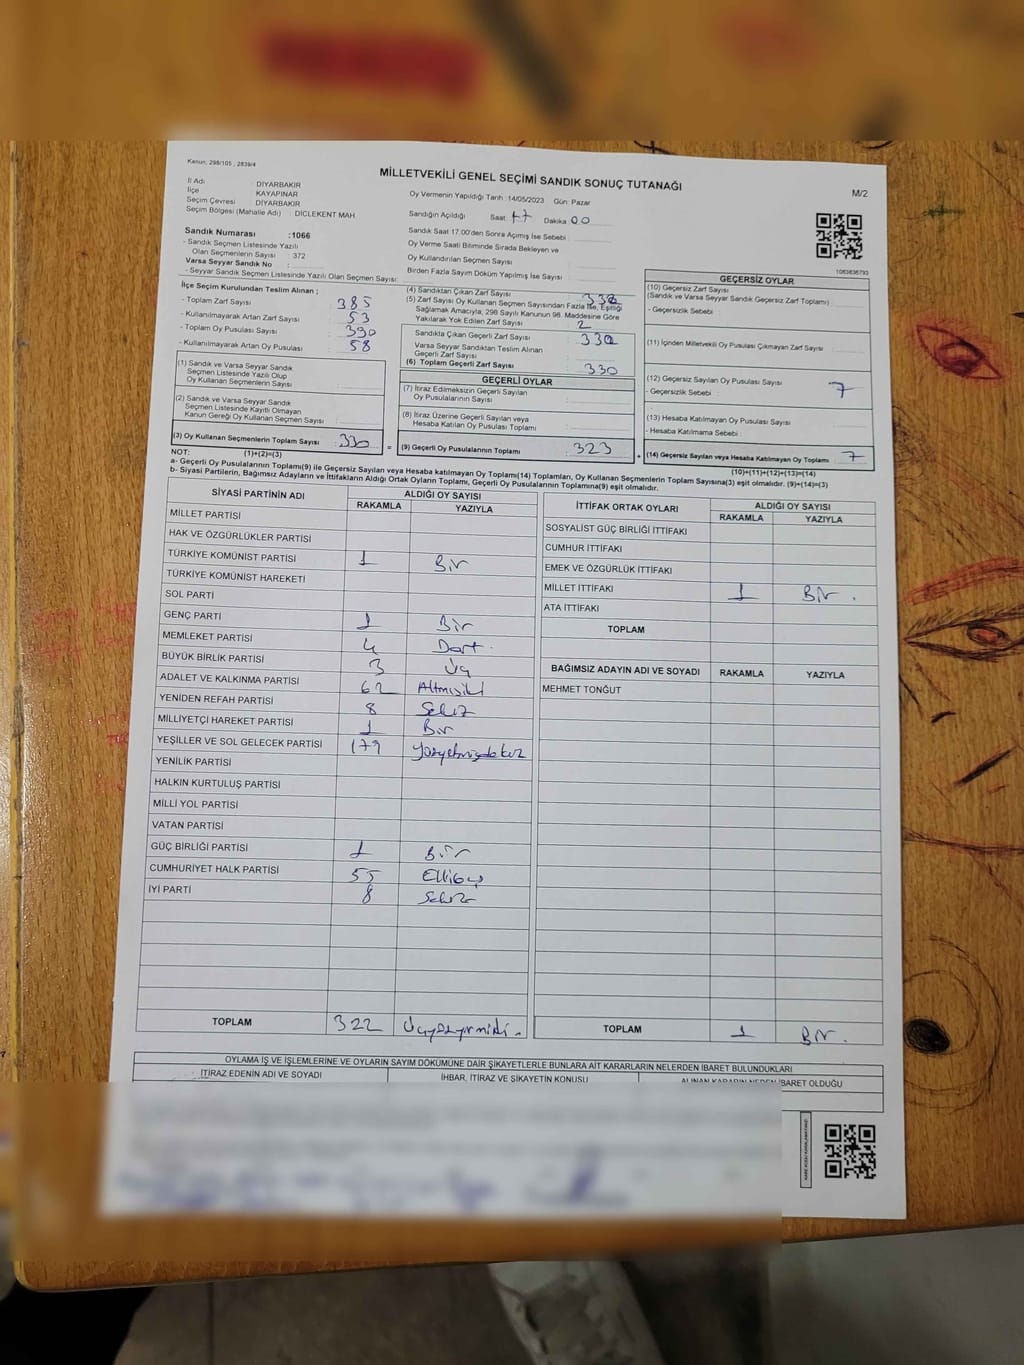 Kanun; 298/105 , 2839/4
MİLLETVEKİLİ GENEL SEÇİMİ SANDIK SONUÇ TUTANAĞI
M/2
İl Adı DİYARBAKIR
İlçe KAYAPINAR
Seçim Çevresi DİYARBAKIR
Seçim Bölgesi (Mahalle Adı) : DİCLEKENT MAH
Sandık Numarası :1066
- Sandık Seçmen Listesinde Yazılı
Olan Seçmenlerin Sayısı : 372
Varsa Seyyar Sandık No :
- Seyyar Sandık Seçmen Listesinde Yazılı Olan Seçmen Sayısı:
Oy Vermenin Yapıldığı Tarih :14/05/2023 Gün: Pazar
Sandığın Açıldığı Saat 17 Dakika 00
Sandık Saat 17.00'den Sonra Açımış İse Sebebi :
Oy Verme Saati Bitiminde Sırada Bekleyen ve
Oy Kullandırılan Seçmen Sayısı
Birden Fazla Sayım Döküm Yapılmış İse Sayısı :
1063636793
İlçe Seçim Kurulundan Teslim Alınan ;
- Toplam Zarf Sayısı 385
- Kullanılmayarak Artan Zarf Sayısı 53
- Toplam Oy Pusulası Sayısı 390
- Kullanılmayarak Artan Oy Pusulası 58
(1) Sandık ve Varsa Seyyar Sandık
Seçmen Listesinde Yazılı Olup
Oy Kullanan Seçmenlerin Sayısı :
(2) Sandık ve Varsa Seyyar Sandık
Seçmen Listesinde Kayıtlı Olmayan
Kanun Gereği Oy Kullanan Seçmen Sayısı :
(3) Oy Kullanan Seçmenlerin Toplam Sayısı : 330
(4) Sandıktan Çıkan Zarf Sayısı
(5) Zarf Sayısı Oy Kullanan Seçmen Sayısından Fazla İse, Eşitliği
Sağlamak Amacıyla, 298 Sayılı Kanunun 98. Maddesine Göre
Yakılarak Yok Edilen Zarf Sayısı 2
Sandıkta Çıkan Geçerli Zarf Sayısı 330
Varsa Seyyar Sandıktan Teslim Alınan
Geçerli Zarf Sayısı
(6) Toplam Geçerli Zarf Sayısı 330
GEÇERLİ OYLAR
(7) İtiraz Edilmeksizin Geçerli Sayılan
Oy Pusulalarının Sayısı
(8) İtiraz Üzerine Geçerli Sayılan veya
Hesaba Katılan Oy Pusulası Toplamı
= (9) Geçerli Oy Pusulalarının Toplamı 323 +
GEÇERSİZ OYLAR
(10) Geçersiz Zarf Sayısı
(Sandık ve Varsa Seyyar Sandık Geçersiz Zarf Toplamı)
- Geçersizlik Sebebi :
(11) İçinden Milletvekili Oy Pusulası Çıkmayan Zarf Sayısı
(12) Geçersiz Sayılan Oy Pusulası Sayısı 7
- Geçersizlik Sebebi :
(13) Hesaba Katılmayan Oy Pusulası Sayısı
- Hesaba Katılmama Sebebi :
(14) Geçersiz Sayılan veya Hesaba Katılmayan Oy Toplamı 7
NOT: (1)+(2)=(3)
(10)+(11)+(12)+(13)=(14)
a- Geçerli Oy Pusulalarının Toplamı(9) ile Geçersiz Sayılan veya Hesaba katılmayan Oy Toplamı(14) Toplamları, Oy Kullanan Seçmenlerin Toplam Sayısına(3) eşit olmalıdır. (9)+(14)=(3)
b- Siyasi Partilerin, Bağımsız Adayların ve İttifakların Aldığı Ortak Oyların Toplamı, Geçerli Oy Pusulalarının Toplamına(9) eşit olmalıdır.
SİYASİ PARTİNİN ADI ALDIĞI OY SAYISI
RAKAMLA YAZIYLA
MİLLET PARTİSİ
HAK VE ÖZGÜRLÜKLER PARTİSİ
TÜRKİYE KOMÜNİST PARTİSİ 1 Bir
TÜRKİYE KOMÜNİST HAREKETİ
SOL PARTİ
GENÇ PARTİ 1 Bir
MEMLEKET PARTİSİ 4 Dört
BÜYÜK BİRLİK PARTİSİ 3 Üç
ADALET VE KALKINMA PARTİSİ 62 Altmışiki
YENİDEN REFAH PARTİSİ 8 Sekiz
MİLLİYETÇİ HAREKET PARTİSİ 1 Bir
YEŞİLLER VE SOL GELECEK PARTİSİ 179 Yüzyetmişdokuz
YENİLİK PARTİSİ
HALKIN KURTULUŞ PARTİSİ
MİLLİ YOL PARTİSİ
VATAN PARTİSİ
GÜÇ BİRLİĞİ PARTİSİ 1 Bir
CUMHURİYET HALK PARTİSİ 55 Ellibeş
İYİ PARTİ 8 Sekiz
TOPLAM 322 Üçyüzyirmiiki.
İTTİFAK ORTAK OYLARI ALDIĞI OY SAYISI
RAKAMLA YAZIYLA
SOSYALİST GÜÇ BİRLİĞİ İTTİFAKI
CUMHUR İTTİFAKI
EMEK VE ÖZGÜRLÜK İTTİFAKI
MİLLET İTTİFAKI 1 Bir .
ATA İTTİFAKI
TOPLAM
BAĞIMSIZ ADAYIN ADI VE SOYADI RAKAMLA YAZIYLA
MEHMET TONĞUT
TOPLAM 1 Bir.
OYLAMA İŞ VE İŞLEMLERİNE VE OYLARIN SAYIM DÖKÜMÜNE DAİR ŞİKAYETLERLE BUNLARA AİT KARARLARIN NELERDEN İBARET BULUNDUKLARI
İTİRAZ EDENİN ADI VE SOYADI İHBAR, İTİRAZ VE ŞİKAYETİN KONUSU ALINAN KARARIN NEDEN İBARET OLDUĞU